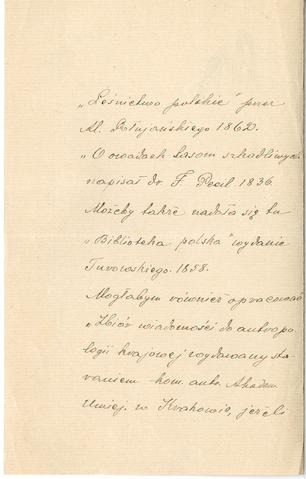 „Leśnictwo polskie" przez
Al. Połujańskiego 1862.
„O owadach lasom szkodliwych
napisał dr F. Pecil 1836.
Możeby także nadała się tu
„Biblioteka polska" wydanie
Turowskiego. 1858.
Mogłabym również opracować
„Zbiór wiadomości do antropo-
logii krajowej wydawany sta-
raniem kom. antr. Akadem.
Umiej. w Krakowie, jeżeli